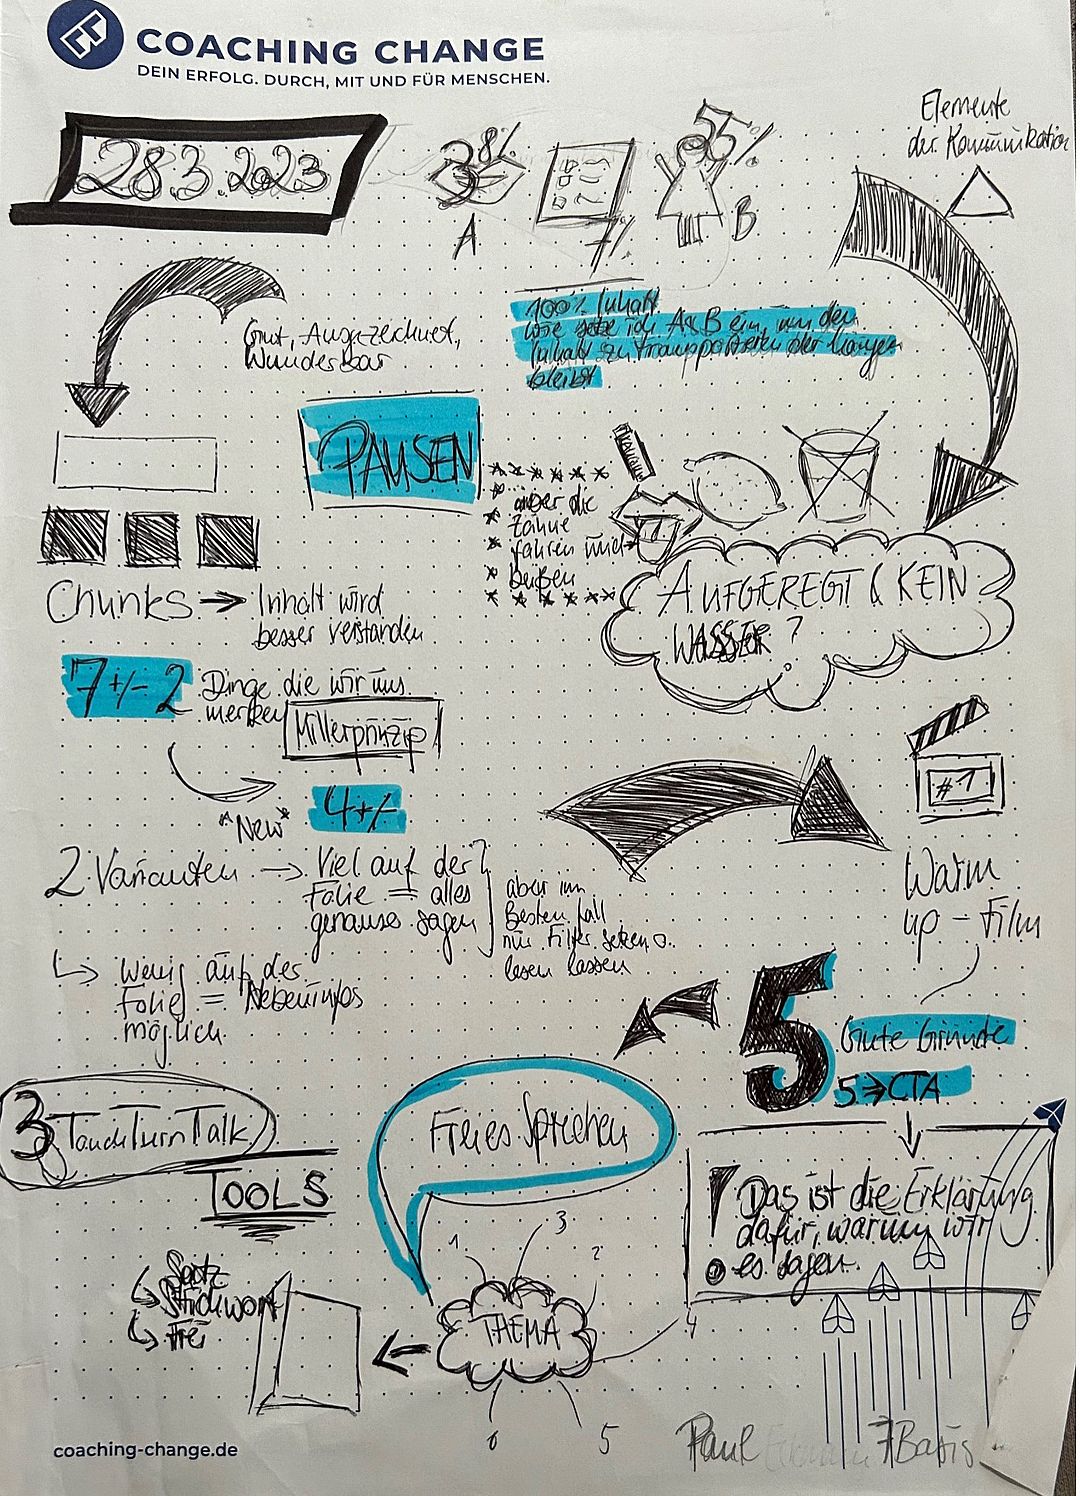 COACHING CHANGE
DEIN ERFOLG. DURCH, MIT UND FÜR MENSCHEN.
28.3.2023
38%
A
7%
55%
B
Elemente
der Kommunikation
Gut, Ausgezeichnet,
Wunderbar
100% Inhalt
wie setze ich A & B ein, um den
Inhalt zu transportieren der hängen
bleibt
PAUSEN
über die
Zähne
fahren und
beißen
AUFGEREGT & KEIN
WASSER?
Chunks → Inhalt wird
besser verstanden
7+/- 2 Dinge die wir uns
merken
Millerprinzip
*New*
4+/-
2 Varianten → Viel auf der
Folie = alles
genauso sagen
aber im
Besten fall
nur Filter setzen o.
lesen lassen
Wenig auf der
Folie = Nebeninfos
möglich
#1
Warm
up - Film
5 Gute Gründe
5 → CTA
Das ist die Erklärung
dafür, warum wir
es sagen.
3 TouchTurnTalk
TOOLS
Satz
Stichwort
Frei
Freies Sprechen
THEMA
1
3
2
4
5
6
Paul
7Basis
coaching-change.de